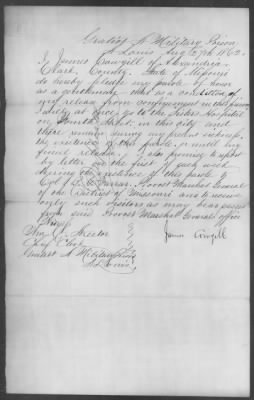 Gratiot St Military Prison
St Louis Aug 1862
I James Cowgill of Alexandria
Clark County, State of Missouri
do hereby pledge my parole of honor
as a gentleman that as a condition of
my release from confinement in this prison
I will at once go to the Sisters Hospital
on Fourth Street in this city and
there remain during my present sickness,
the existence of this parole, or until my
final release. I also promise to report
by letter on the first of each week
during the existence of this parole to
Col Farrar, Provost Marshal General
of the District of Missouri and to receive
only such visitors as may bear passes
from said Provost Marshal Generals office
James Cowgill
Chief Clerk
Gratiot St Military Prison
St Louis